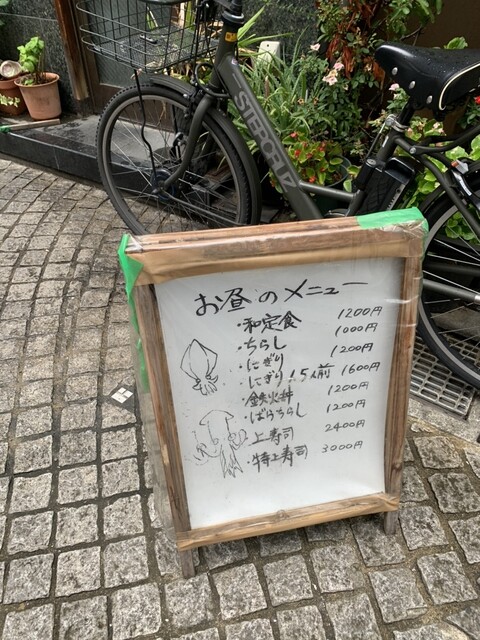 STEPCRUZ
お昼のメニュー
・和定食 1200円
・ちらし 1000円
・にぎり 1200円
・にぎり1.5人前 1600円
・鉄火丼 1200円
・ばらちらし 1200円
・上寿司 2400円
・特上寿司 3000円